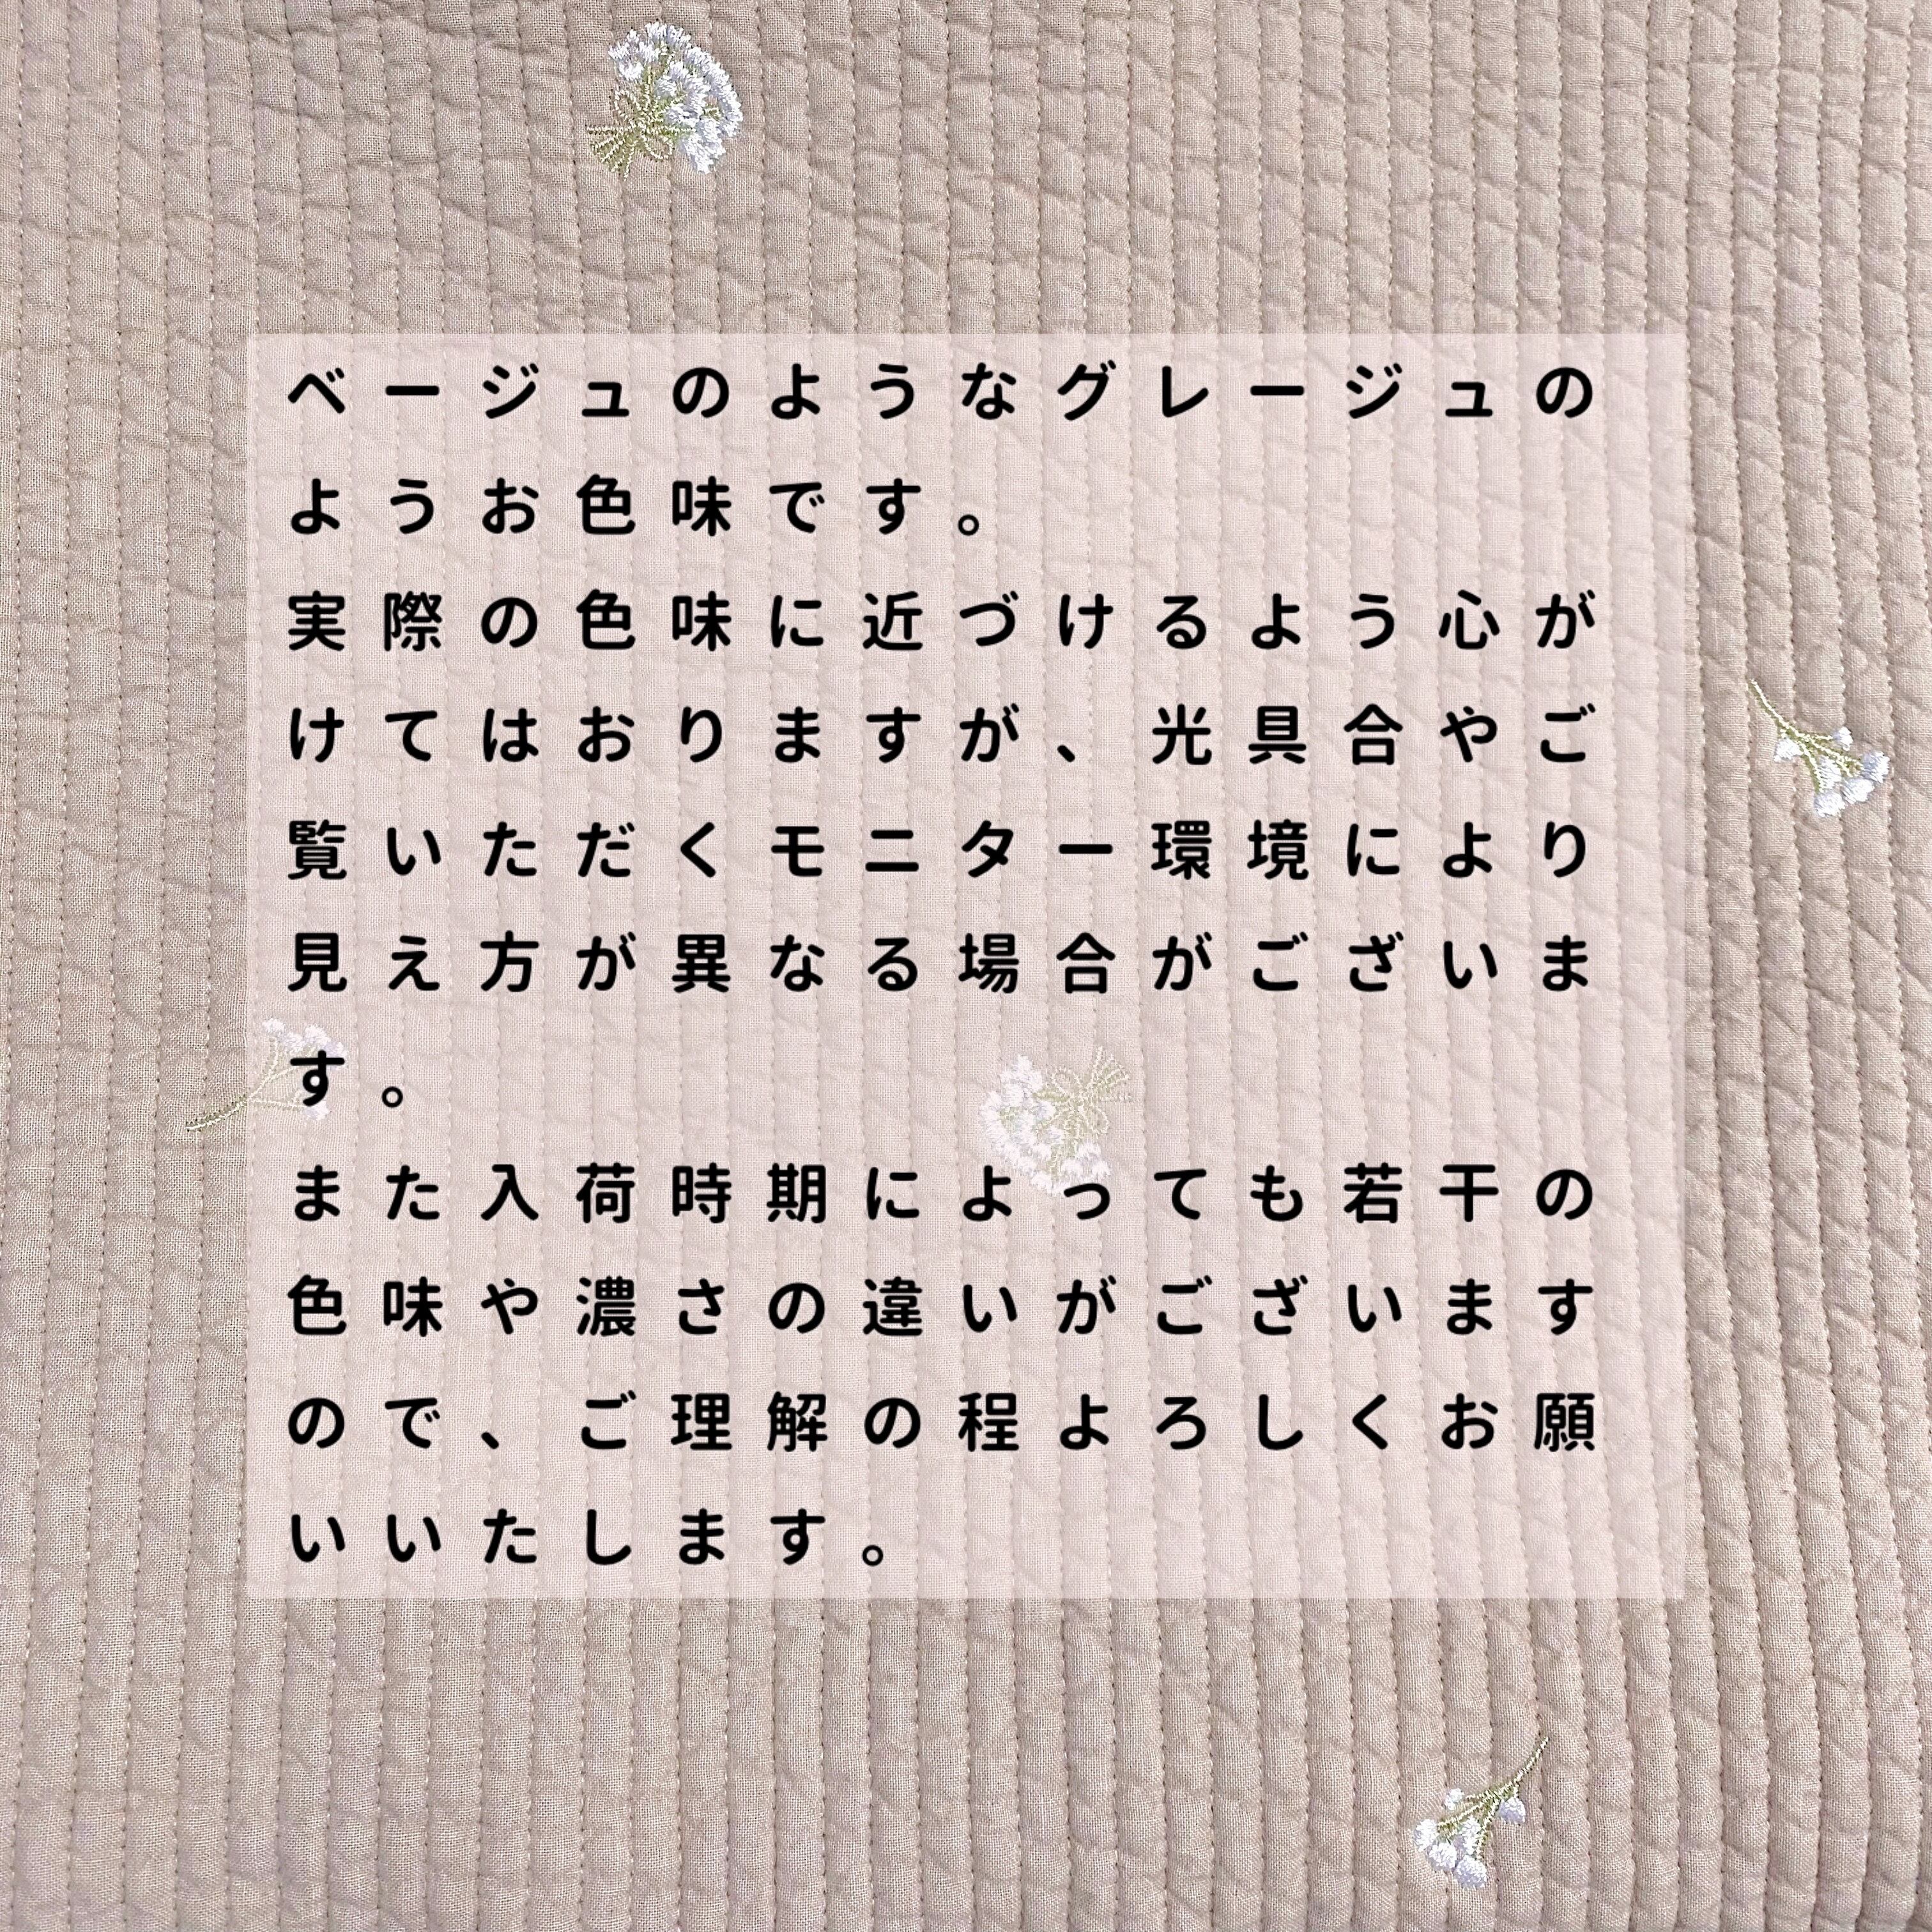 ベージュのようなグレージュの
ようお色味です。
実際の色味に近づけるよう心が
けてはおりますが、光具合やご
覧いただくモニター環境により
見え方が異なる場合がございま
す。
また入荷時期によっても若干の
色味や濃さの違いがございます
ので、ご理解の程よろしくお願
いいたします。